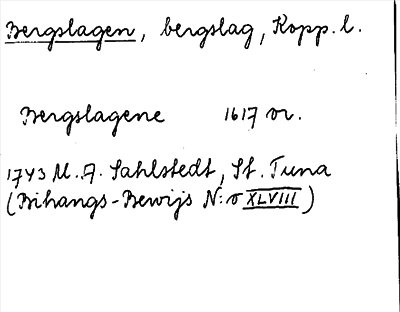 Bergslagen, bergslag, Kopp. l.
Bergslagene 1617 or.
1743 M. A. Sahlstedt, St. Tuna
(Bihangs-Bewijs N:o XLVIII)